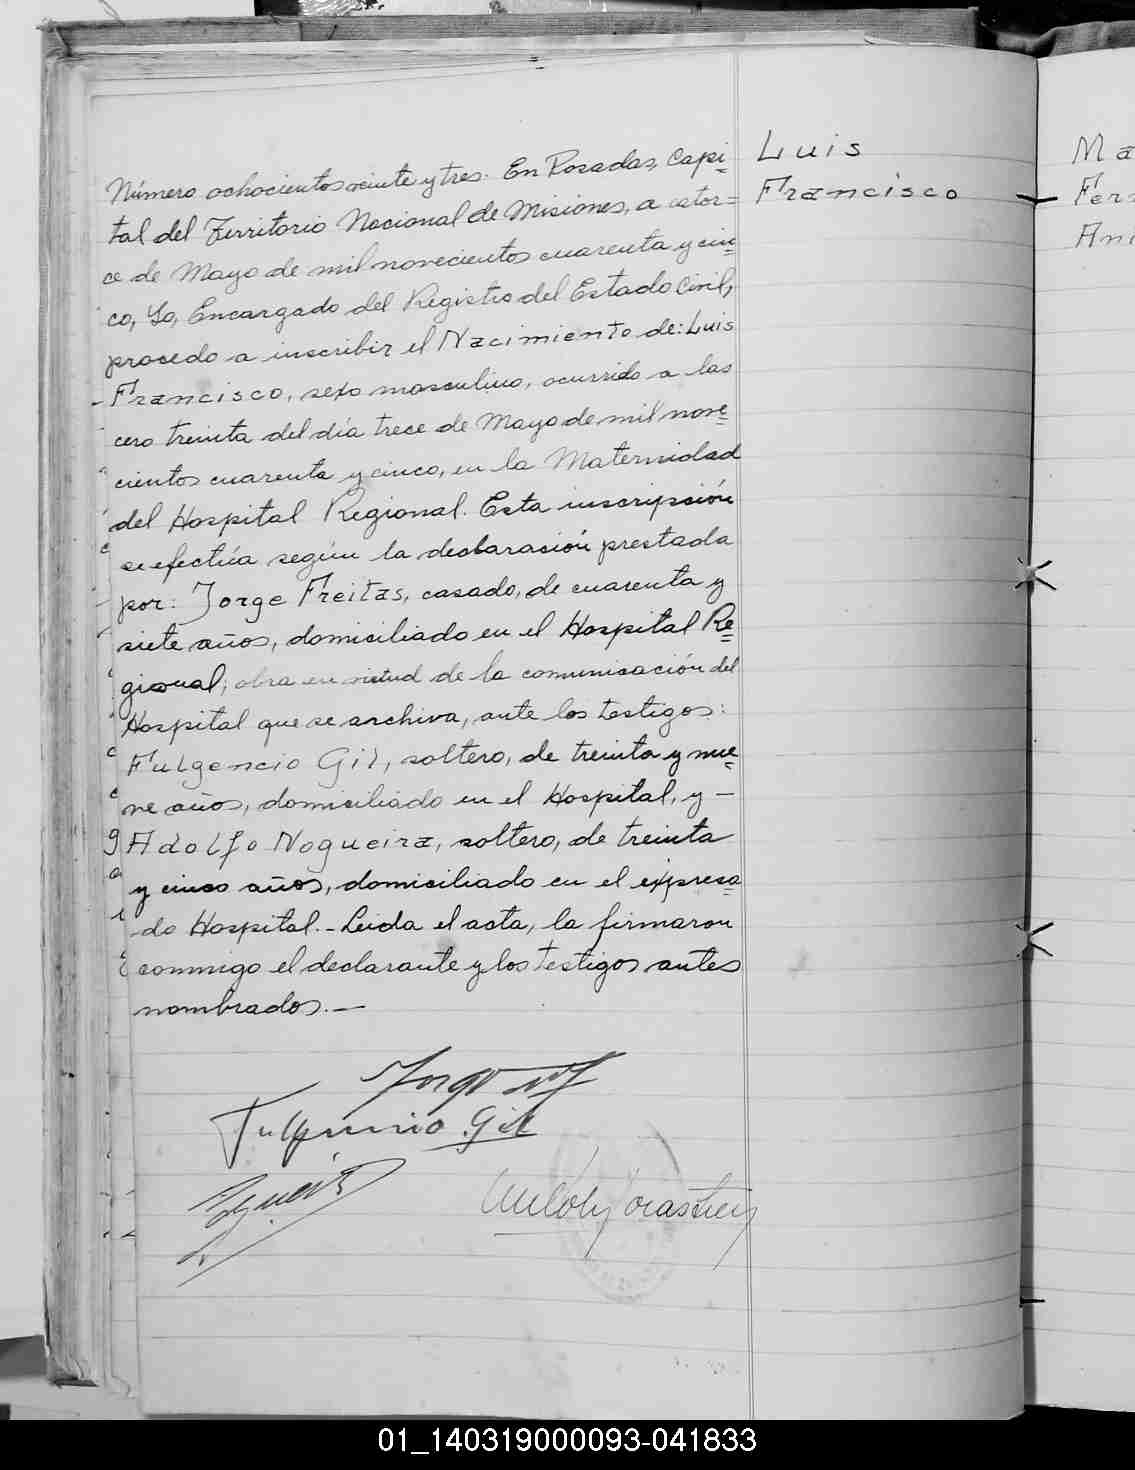 Luis
Francisco
Número ochocientos veinte y tres. En Posadas, Capi=
tal del Territorio Nacional de Misiones, a cator=
ce de Mayo de mil novecientos cuarenta y cin=
co, Yo, Encargado del Registro del Estado Civil,
procedo a inscribir el Nacimiento de: Luis
Francisco, sexo masculino, ocurrido a las
cero treinta del día trece de Mayo de mil nove=
cientos cuarenta y cinco, en la Maternidad
del Hospital Regional. Esta inscripción
se efectúa según la declaración prestada
por: Jorge Freitas, casado, de cuarenta y
siete años, domiciliado en el Hospital Re=
gional; obra en virtud de la comunicación del
Hospital que se archiva, ante los testigos:
Fulgencio Gil, soltero, de treinta y nue=
ve años, domiciliado en el Hospital, y —
Adolfo Nogueira, soltero, de treinta
y cinco años, domiciliado en el expresa=
do Hospital.- Leida el acta, la firmaron
conmigo el declarante y los testigos antes
nombrados.—
Fulgencio Gil
Ma
Fer
An
01_140319000093-041833